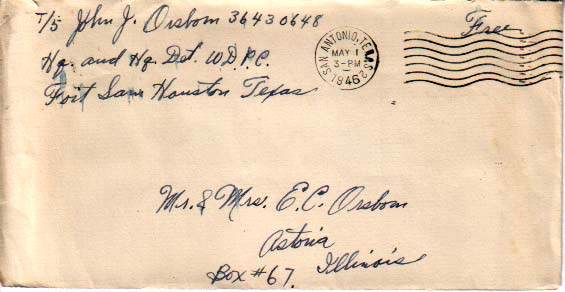 T/5 John J. Orsborn 36430648
Hq. and Hq. Det. W.D.P.C.
Fort Sam Houston Texas
SAN ANTONIO, TEXAS 2
MAY 1
3-PM
1946
Free
Mr. & Mrs. E.C. Orsborn
Astoria
Box #67. Illinois